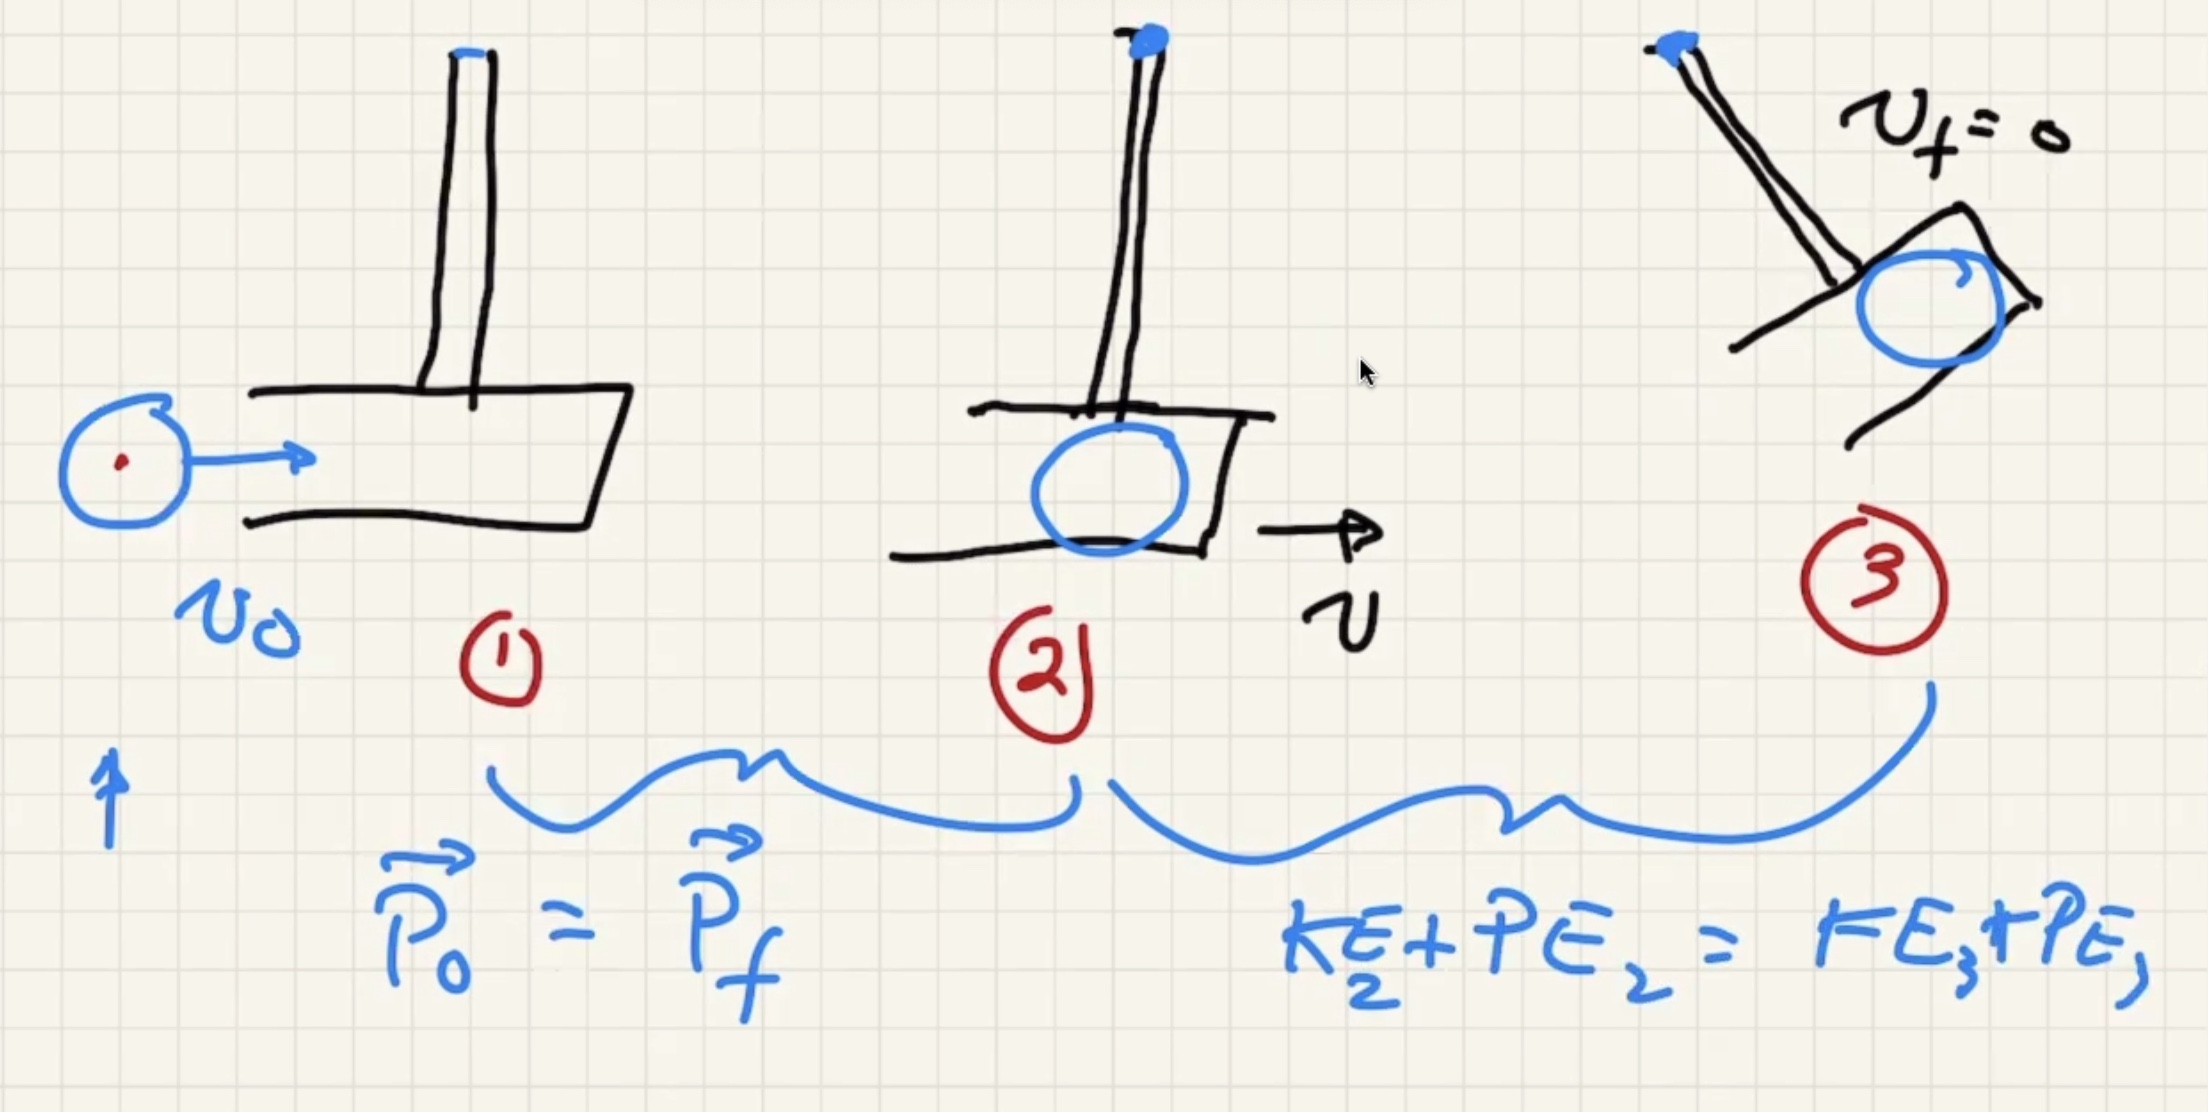 v_f = 0
v_0
v
① ② ③
P⃗_0 = P⃗_f
KE_2 + PE_2 = KE_3 + PE_3